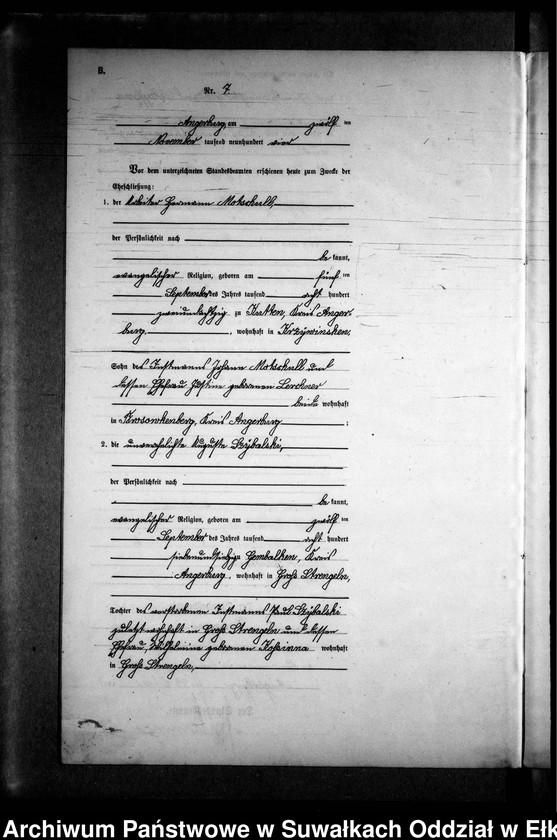 B.
Nr. 7
Angerburg, am zwölf ten
November tausend neunhundert vier
Vor dem unterzeichneten Standesbeamten erschienen heute zum Zwecke der
Eheschließung:
1. der Arbeiter Hermann Motskull,
der Persönlichkeit nach
be kannt,
evangelischer Religion, geboren am fünf ten
September des Jahres tausend acht hundert
zweiundachtzig zu Kutten, Kreis Anger-
burg, wohnhaft in Krzywinsken,
Sohn des Instmanns Johann Motskull und
dessen Ehefrau Justine geborenen Lerchner
beide wohnhaft
in Kreis Angerburg ;
2. die unverehelichte Auguste Skybalski,
der Persönlichkeit nach
be kannt,
evangelischer Religion, geboren am zwölf ten
September des Jahres tausend acht hundert
siebenundsiebzig zu Gembalken, Kreis
Angerburg, wohnhaft in Groß Strengeln,
Tochter des verstorbenen Instmanns Paul Skybalski
zuletzt wohnhaft in Groß Strengeln und dessen
Ehefrau, Wilhelmine geborenen wohnhaft
in Groß Strengeln,
Archiwum Państwowe w Suwałkach Oddział w Ełk